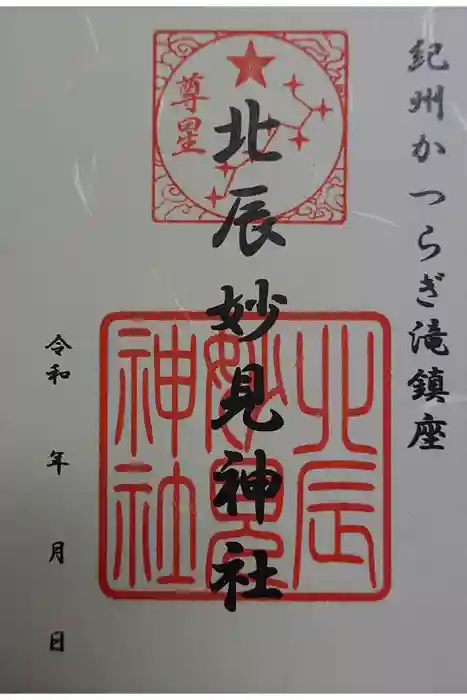 紀州かつらぎ滝鎮座
尊星
北辰妙見神社
北辰
妙見
神社
令和 年 月 日